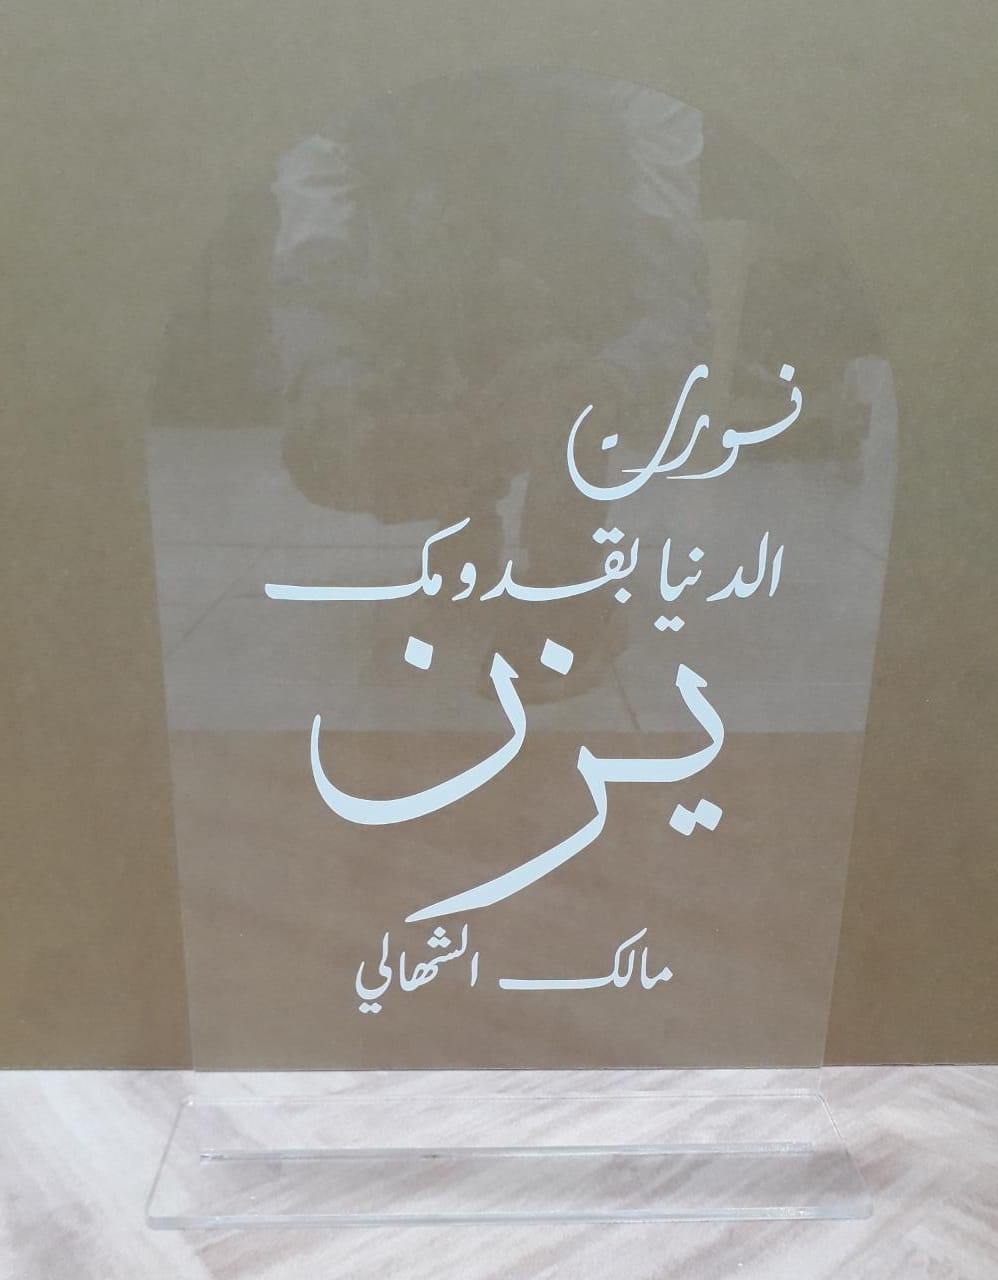 نورت
الدنيا بقدومك
يزن
مالك الشهالي